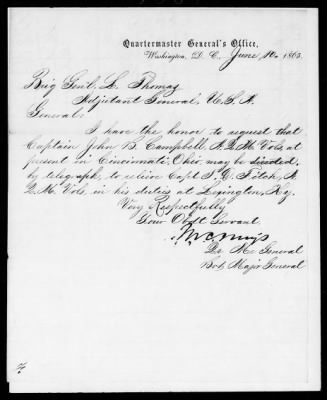 Quartermaster General's Office,
Washington, D. C., June 10, 1865.
Brig Gen'l. L. Thomas
Adjutant General, U.S.A.
General:
I have the honor to request that
Captain John B. Campbell, A.Q.M. Vols. at
present in Cincinnati, Ohio may be directed,
by telegraph, to relieve Capt. T. G. Fitch, A.
Q.M. Vols. in his duties at Lexington, Ky.
Very Respectfully
Your Obdt Servant.
M C Meigs
Qr. Mr. General
Bvt. Major General